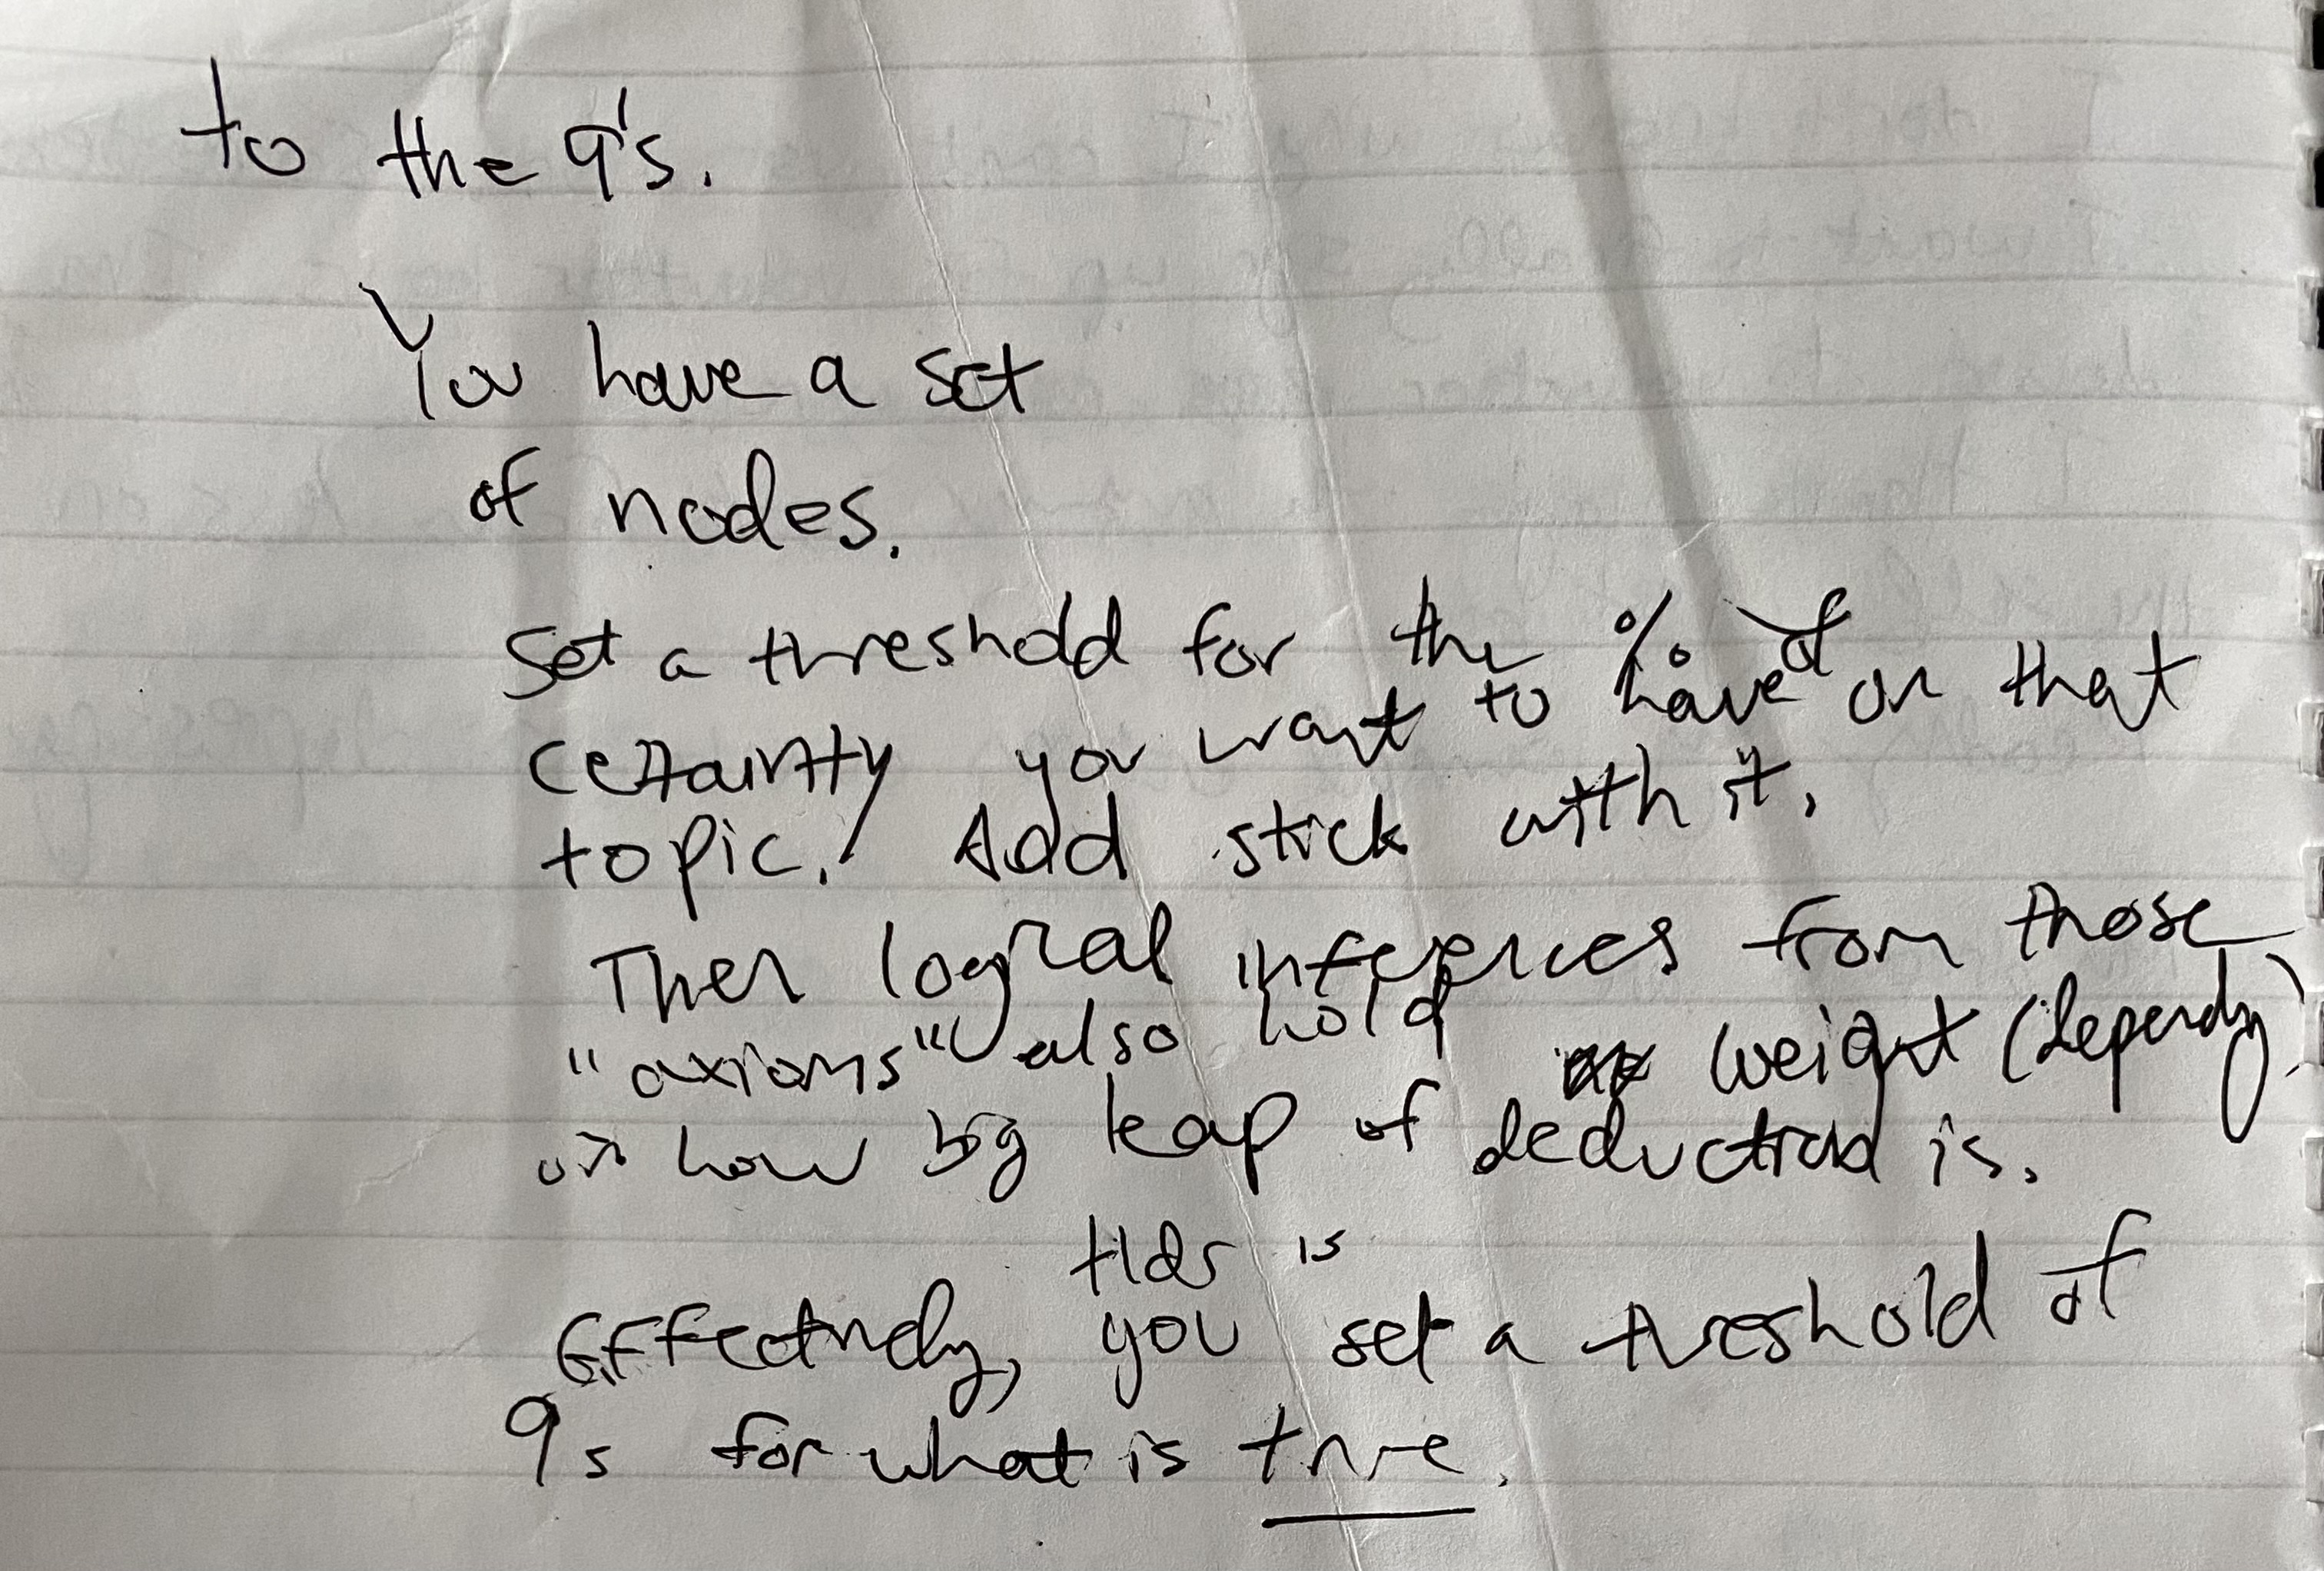 to the 9's.
You have a set
of nodes.
Set a threshold for the % of
certainty you want to have on that
topic. And stick with it.
Then logical inferences from those
"axioms" also hold weight (depending)
on how big leap of deduction is.
tldr is
Effectively, you set a threshold of
9s for what is true.